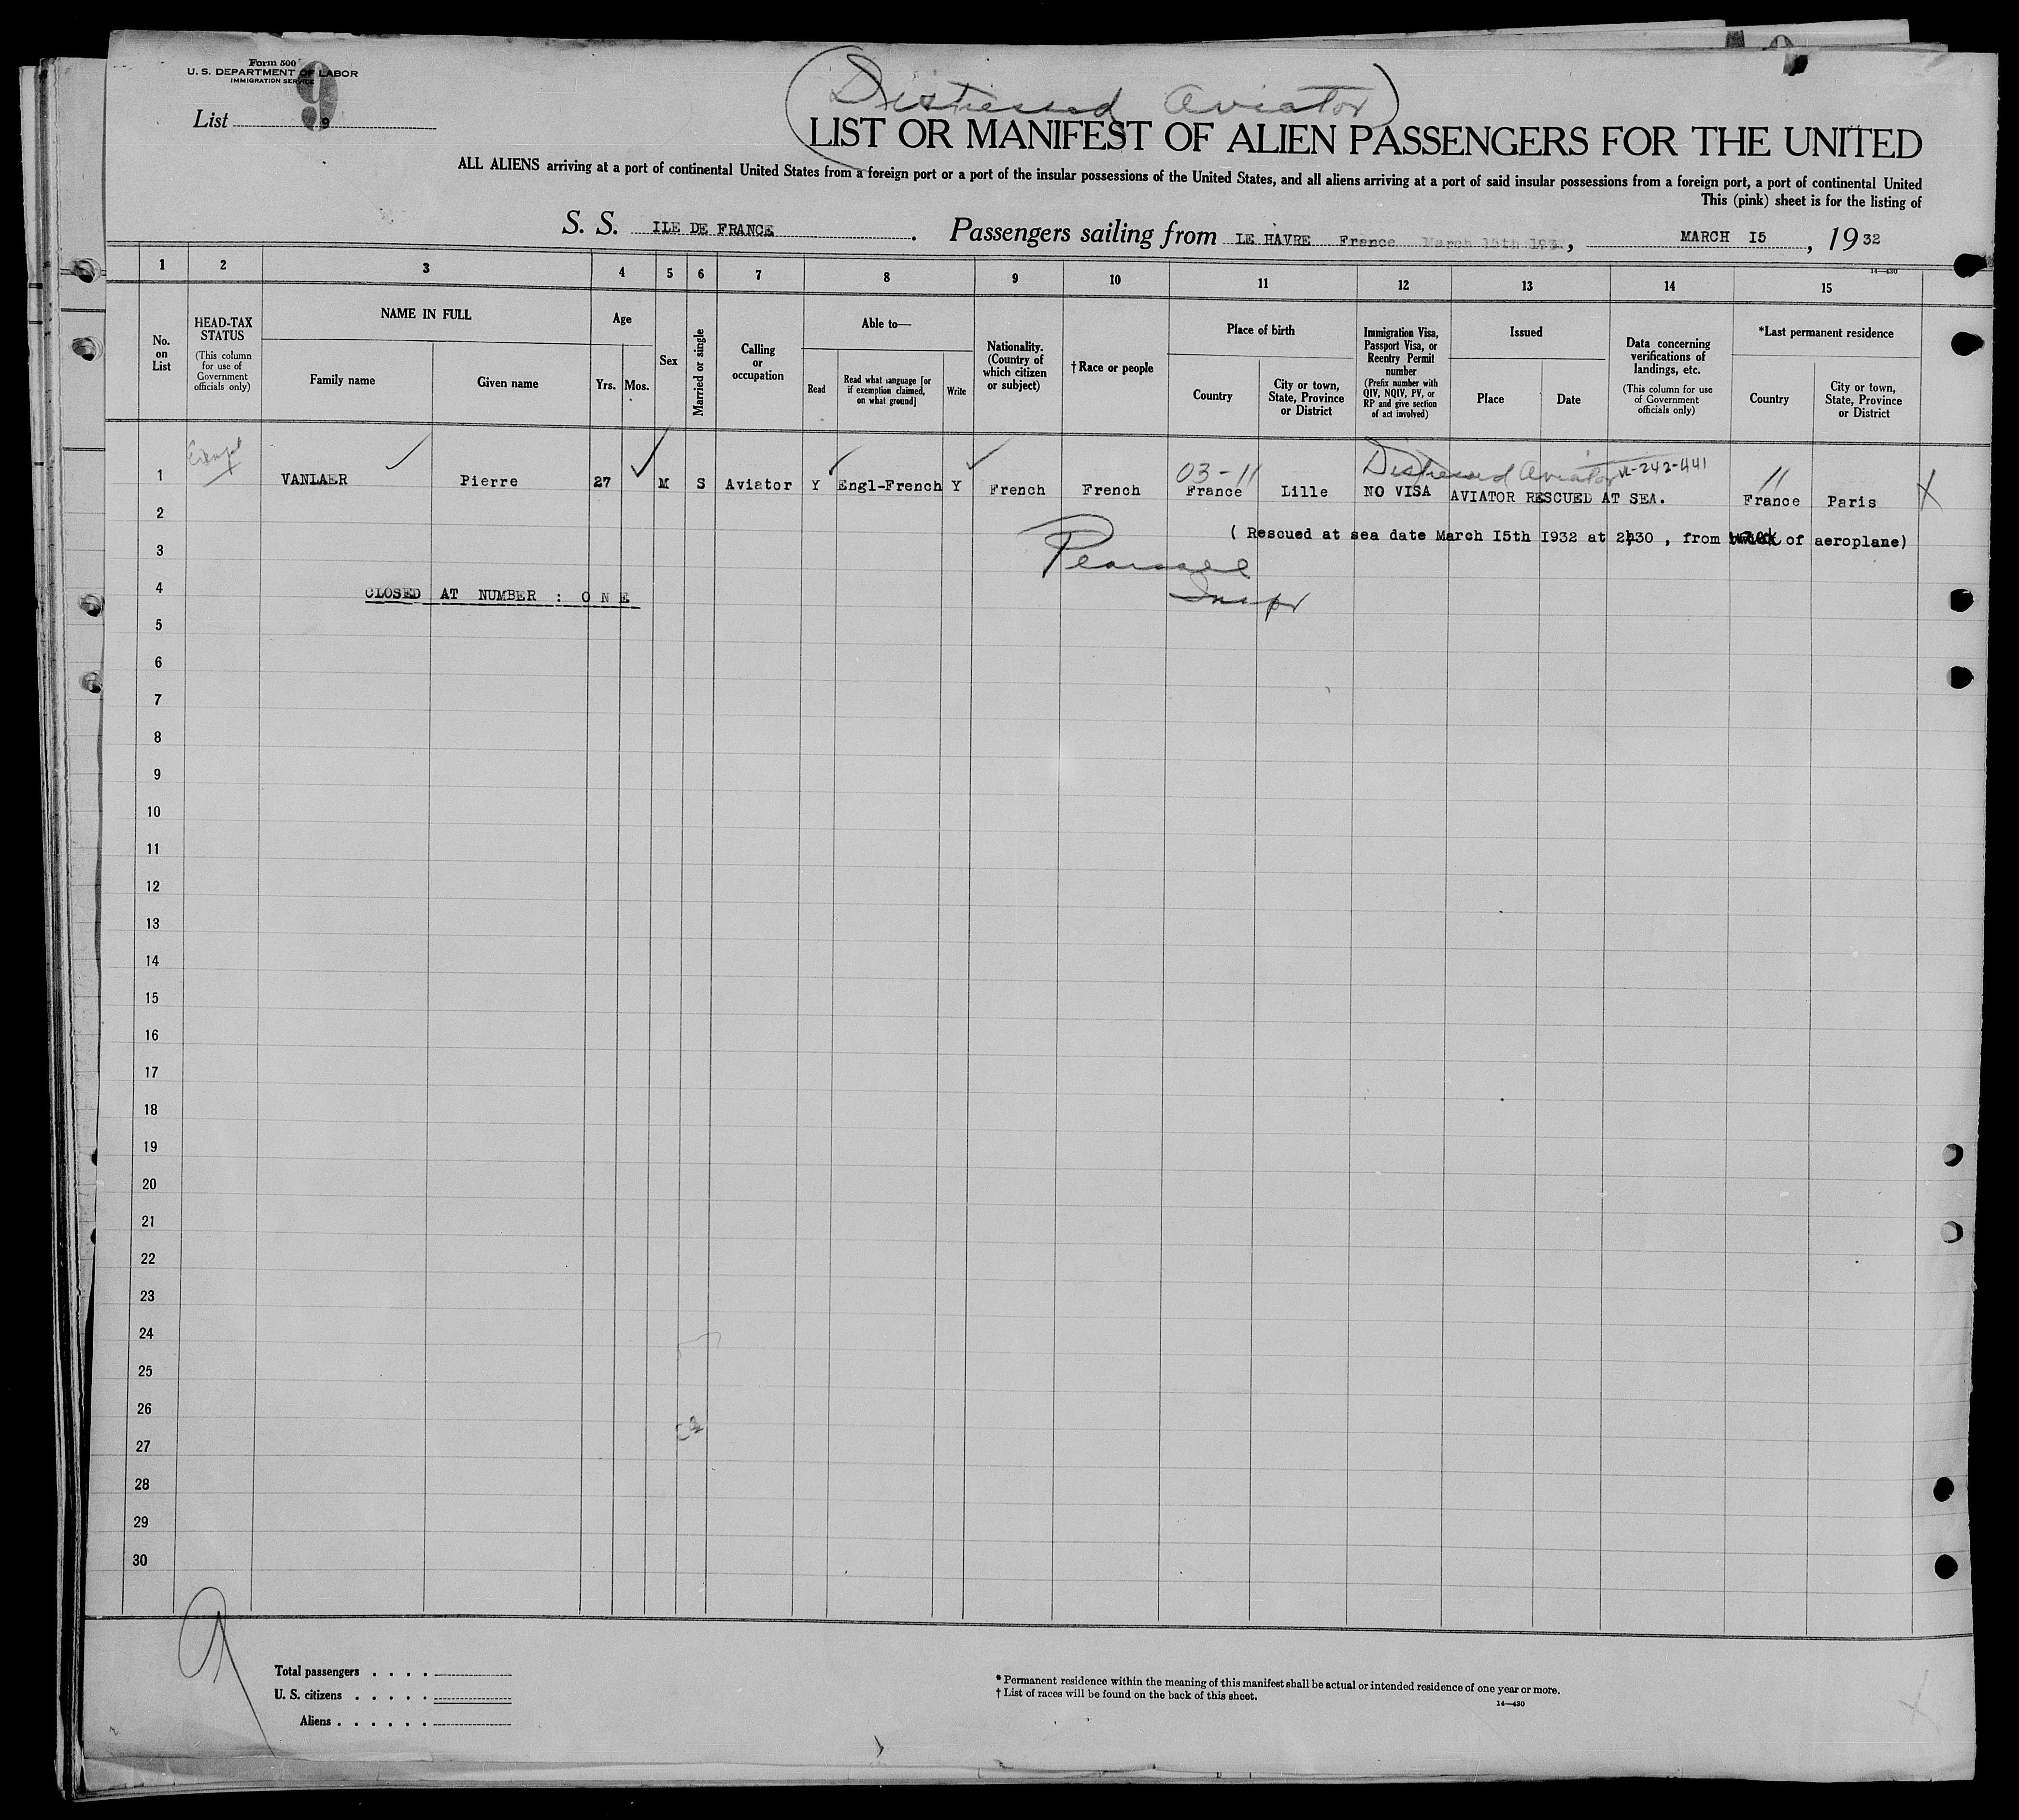 Form 500
U. S. DEPARTMENT OF LABOR
IMMIGRATION SERVICE
9
List 9
(Distressed Aviator)
LIST OR MANIFEST OF ALIEN PASSENGERS FOR THE UNITED
ALL ALIENS arriving at a port of continental United States from a foreign port or a port of the insular possessions of the United States, and all aliens arriving at a port of said insular possessions from a foreign port, a port of continental United
This (pink) sheet is for the listing of
S. S. ILE DE FRANCE. Passengers sailing from LE HAVRE France March 15th 193, MARCH I5, 19 32
14—430
1 2 3 4 5 6 7 8 9 10 11 12 13 14 15
No. on List
HEAD-TAX STATUS
(This column for use of Government officials only)
NAME IN FULL
Family name
Given name
Age
Yrs.
Mos.
Sex
Married or single
Calling or occupation
Able to—
Read
Read what language [or if exemption claimed, on what ground]
Write
Nationality. (Country of which citizen or subject)
†Race or people
Place of birth
Country
City or town, State, Province or District
Immigration Visa, Passport Visa, or Reentry Permit number
(Prefix number with QIV, NQIV, PV, or RP and give section of act involved)
Issued
Place
Date
Data concerning verifications of landings, etc.
(This column for use of Government officials only)
*Last permanent residence
Country
City or town, State, Province or District
Exempt
03-11 Distressed Aviator 242-441 11
1 VANLAER Pierre 27 M S Aviator Y Engl-French Y French French France Lille NO VISA AVIATOR RESCUED AT SEA. France Paris X
2
( Rescued at sea date March I5th I932 at 2h30 , from of aeroplane)
3
Inspr
4 CLOSED AT NUMBER : O N E
5
6
7
8
9
10
11
12
13
14
15
16
17
18
19
20
21
22
23
24
25
26
27
28
29
30
9
Total passengers . . . .
U. S. citizens . . . . .
Aliens . . . . . .
* Permanent residence within the meaning of this manifest shall be actual or intended residence of one year or more.
† List of races will be found on the back of this sheet.
14—430